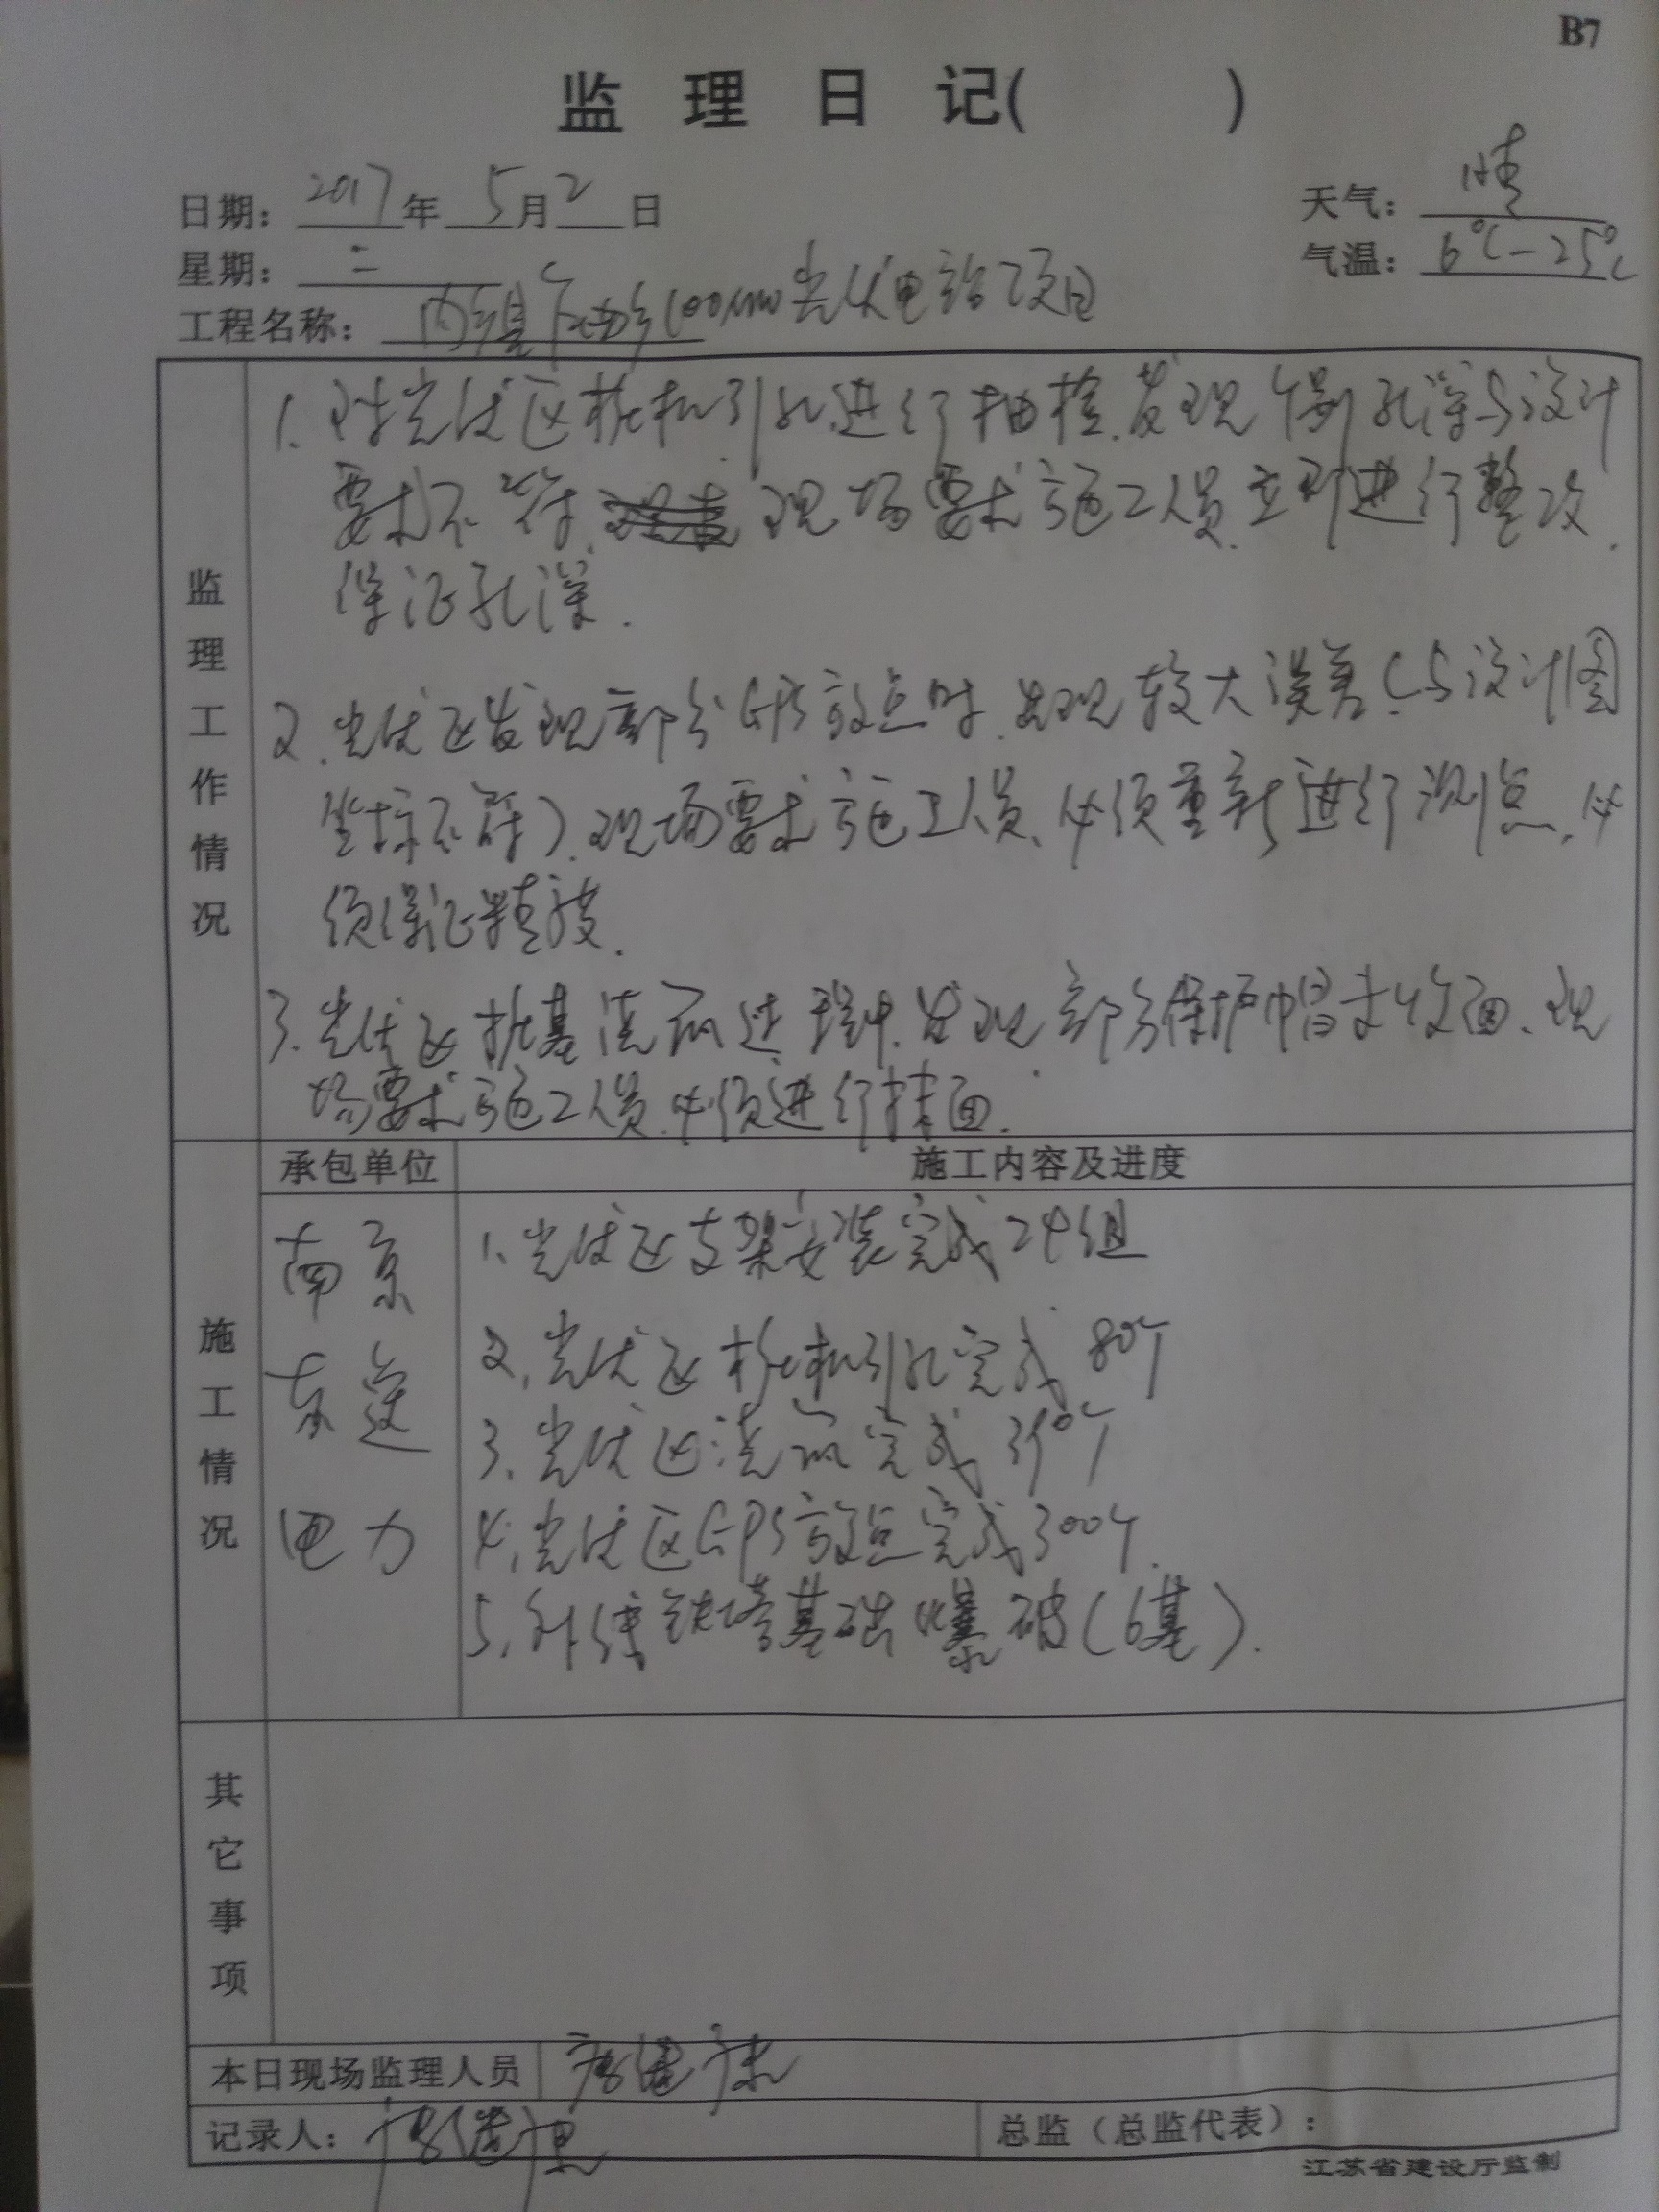 B7
监 理 日 记( )
日期: 2017 年 5 月 2 日
天气: 晴
星期: 二
气温: 6℃-25℃
工程名称: 内 100MW光伏电站项目
监理工作情况
1. 对光伏区桩机引孔进行抽检.发现个别孔深与设计
要求不符. 现场要求施工人员.立即进行整改.
保证孔深.
2. 光伏区发现部分GPS放点时.出现较大误差.(与设计图
坐标不符).现场要求施工人员、必须重新进行测点.必
须保证精度.
3. 光伏区桩基浇筑过程中.发现部分保护帽未收面、现
场要求施工人员.必须进行抹面.
承包单位
施工内容及进度
施工情况
南京
东送
电力
1、光伏区支架安装完成24组
2、光伏区桩机引孔完成80个
3、光伏区浇筑完成350个
4、光伏区GPS放点完成300个.
5、外线铁塔基础爆破(6基).
其它事项
本日现场监理人员
记录人:
总监(总监代表):
江苏省建设厅监制